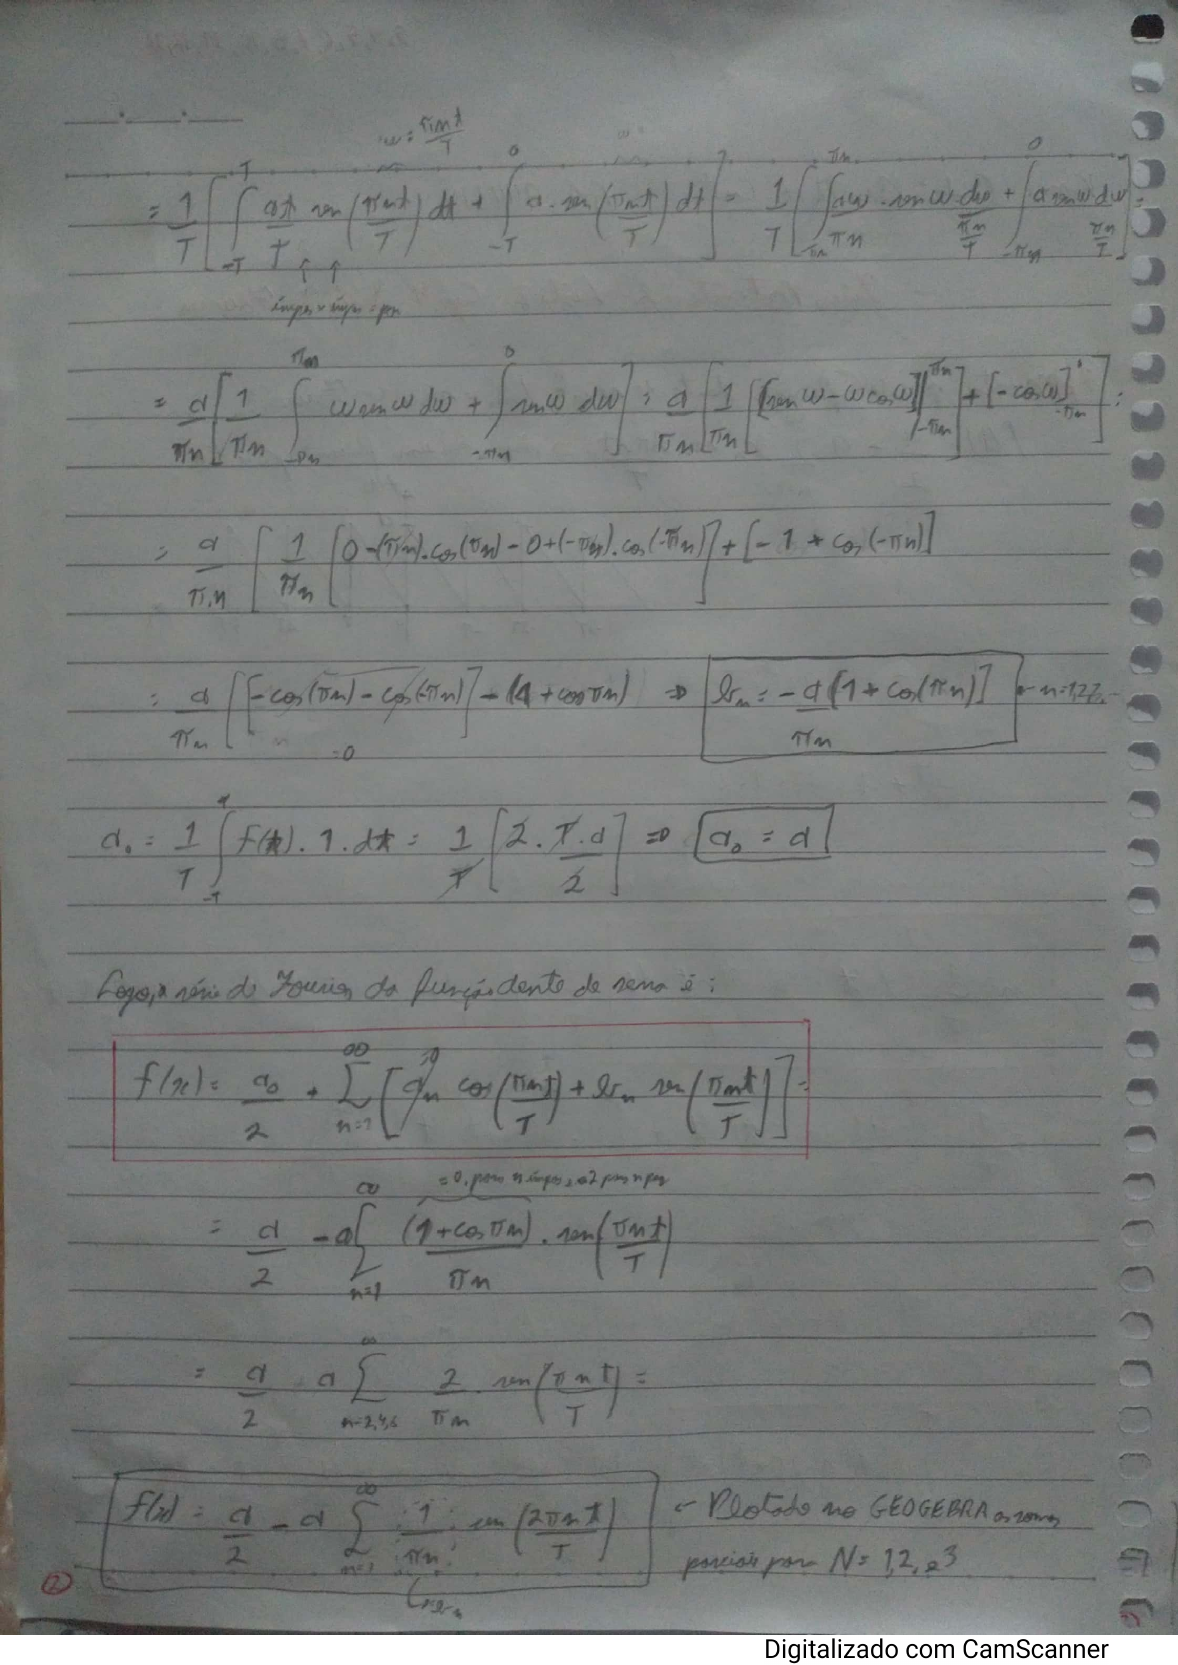 w = πnt/T
= 1/T [ ∫_{-T}^{T} at/T sen(πnt/T) dt + ∫_{-T}^{0} a. sen(πnt/T) dt ] = 1/T [ ∫_{-πn}^{πn} aw/πn . sen w dw/(πn/T) + ∫_{-πn}^{0} a sen w dw/(πn/T) ] =
ímpar × ímpar = par
= a/πn [ 1/πn ∫_{-πn}^{πn} w sen w dw + ∫_{-πn}^{0} sen w dw ] = a/πn [ 1/πn [ [sen w - w cos w] |_{-πn}^{πn} ] + [-cos w]_{-πn}^{0} ] =
= a/π.n [ 1/πn [ 0 - (πn).cos(πn) - 0 + (-πn).cos(-πn) ] + [-1 + cos(-πn)]
= a/πn [ [-cos(πn) - cos(-πn)] - (1 + cos πn) ⇒ bn = -a/πn [1 + cos(πn)] ← n=1,2,3,...
=0
a₀ = 1/T ∫_{-T}^{T} f(t).1.dt = 1/T [ 2.T.a/2 ] ⇒ a₀ = a
Logo, a série de Fourier da função dente de serra é:
f(x) = a₀/2 + ∑_{n=1}^{∞} [ an cos(πnt/T) + bn sen(πnt/T) ] =
=0
= 0, para n ímpar, e 2 para n par
= a/2 - a ∑_{n=1}^{∞} (1 + cos πn)/πn . sen(πnt/T)
= a/2 - a ∑_{n=2,4,6}^{∞} 2/πn . sen(πnt/T) =
f(x) = a/2 - a ∑_{n=1}^{∞} 1/πn . sen(2πnt/T) ← Plotado no GEOGEBRA as somas
parciais para N = 1, 2, e 3
②
Digitalizado com CamScanner